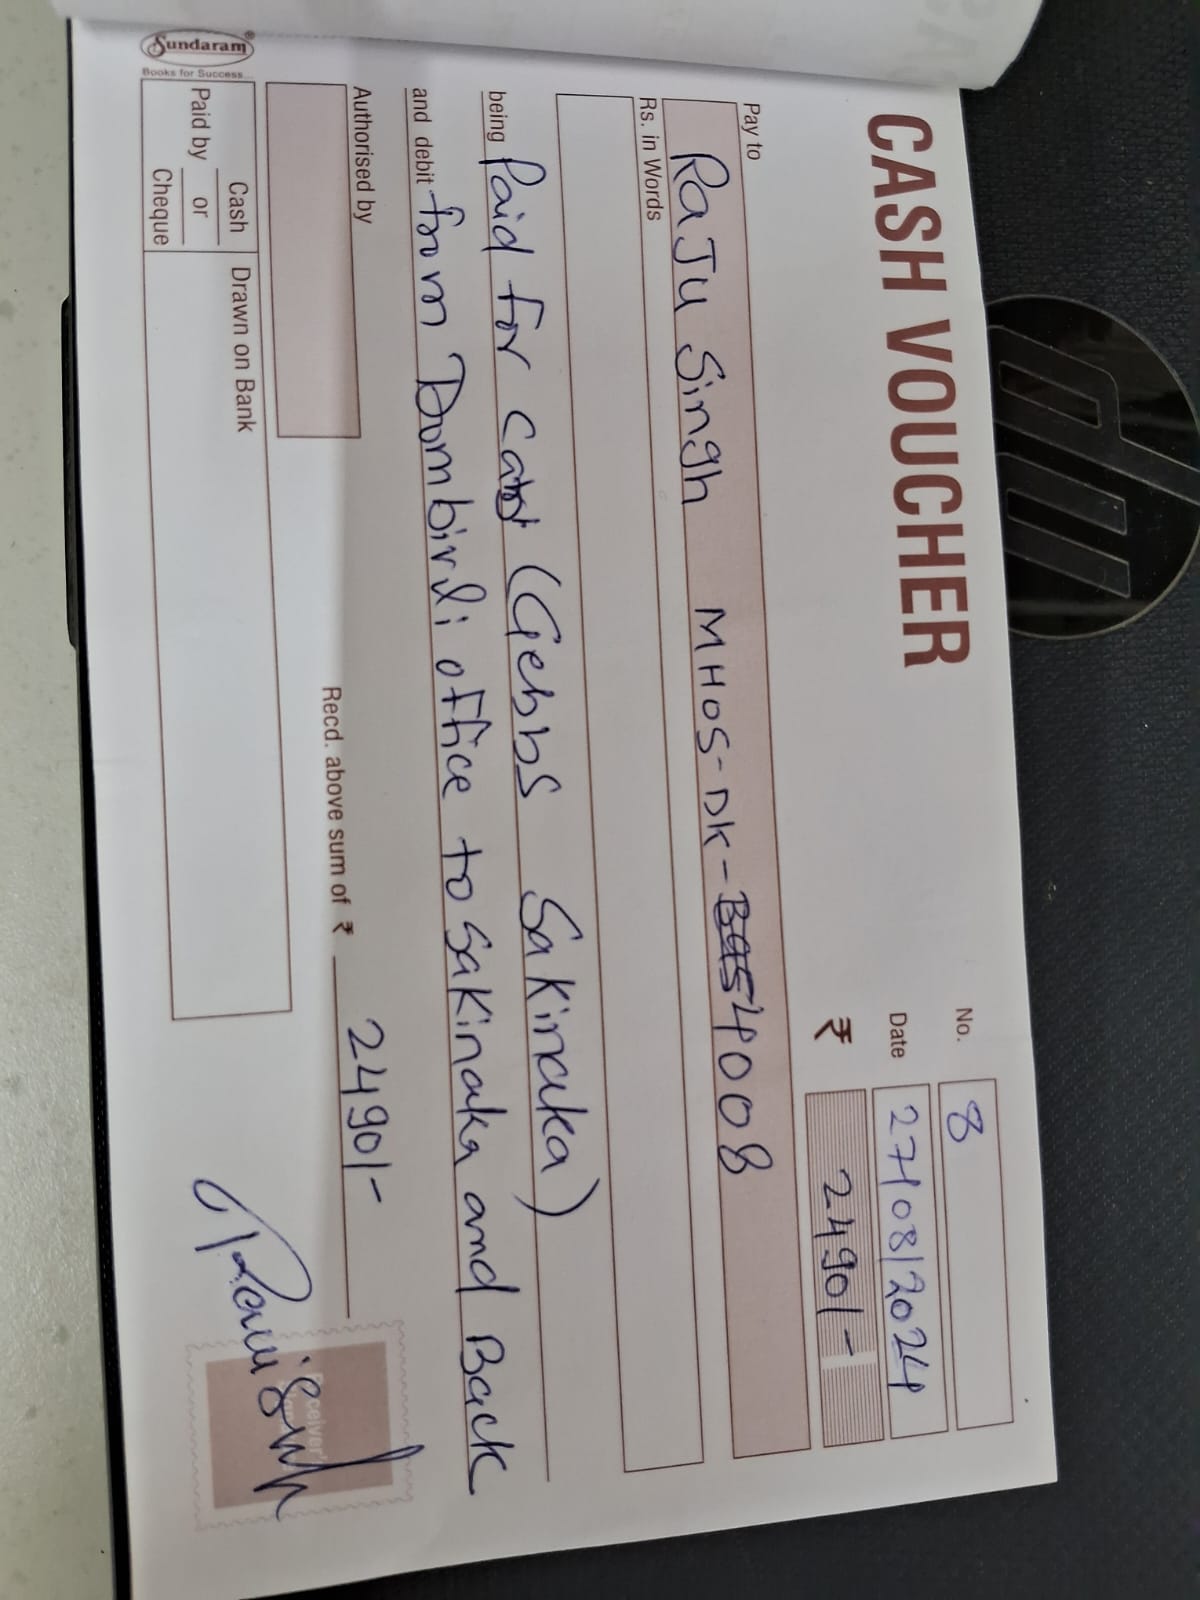 hp
CASH VOUCHER
No. 8
Date 27/08/2024
₹ 2490/-
Pay to
Raju Singh MH05-DK-4008
Rs. in Words
being Paid for (Gebbs Sakinaka)
and debit from Dombivli office to Sakinaka and Back
Authorised by
Recd. above sum of ₹ 2490/-
Receiver's
Paid by Cash or Cheque
Drawn on Bank
Sundaram®
Books for Success...